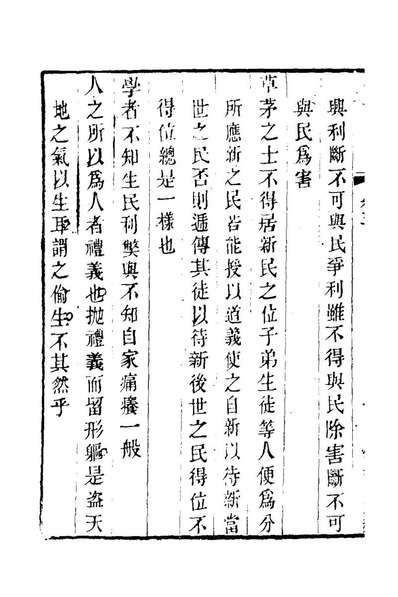 興利斷不可與民爭利雖不得與民除害斷不可
與民爲害
草茅之士不得居新民之位子弟生徒等人便爲分
所應新之民若能授以道義使之自新以待新當
世之民否則遞傳其徒以待新後世之民得位不
得位總是一樣也
學者不知生民利弊與不知自家痛癢一般
人之所以爲人者禮義也拋禮義而留形軀是盜天
地之氣以生耳謂之偷生不其然乎